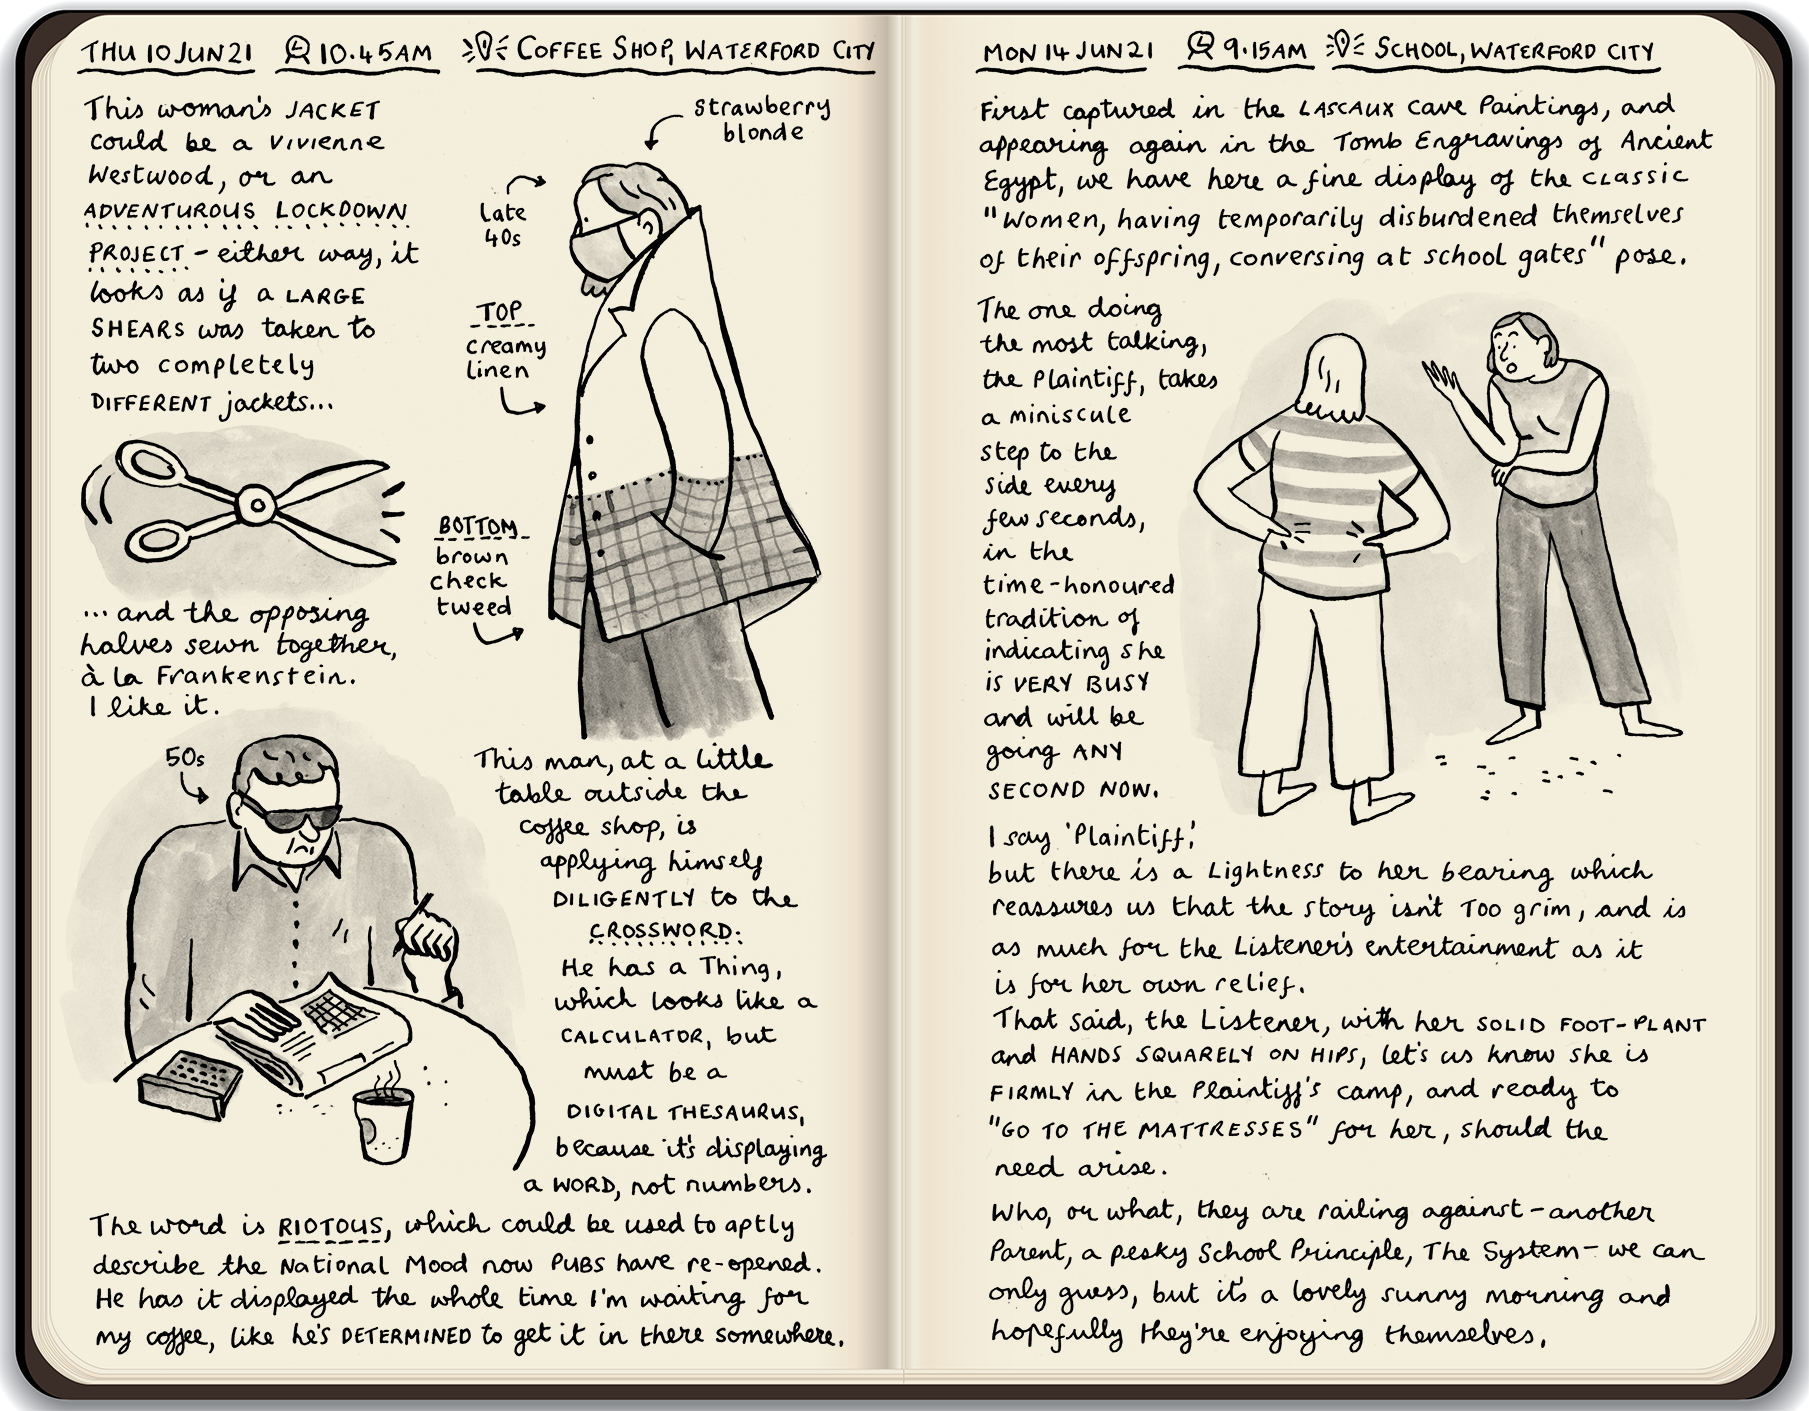 THU 10 JUN 21 10.45AM COFFEE SHOP, WATERFORD CITY
This woman's JACKET
could be a Vivienne
Westwood, or an
ADVENTUROUS LOCKDOWN
PROJECT - either way, it
looks as if a LARGE
SHEARS was taken to
two completely
DIFFERENT jackets...
strawberry
blonde
late
40s
TOP
creamy
linen
BOTTOM
brown
check
tweed
... and the opposing
halves sewn together,
à la Frankenstein.
I like it.
50s
This man, at a little
table outside the
coffee shop, is
applying himself
DILIGENTLY to the
CROSSWORD.
He has a Thing,
which looks like a
CALCULATOR, but
must be a
DIGITAL THESAURUS,
because it's displaying
a WORD, not numbers.
The word is RIOTOUS, which could be used to aptly
describe the National Mood now PUBS have re-opened.
He has it displayed the whole time I'm waiting for
my coffee, like he's DETERMINED to get it in there somewhere.
MON 14 JUN 21 9.15AM SCHOOL, WATERFORD CITY
First captured in the LASCAUX Cave Paintings, and
appearing again in the Tomb Engravings of Ancient
Egypt, we have here a fine display of the CLASSIC
"Women, having temporarily disburdened themselves
of their offspring, conversing at school gates" pose.
The one doing
the most talking,
the Plaintiff, takes
a miniscule
step to the
side every
few seconds,
in the
time-honoured
tradition of
indicating she
is VERY BUSY
and will be
going ANY
SECOND NOW.
I say 'Plaintiff,'
but there is a Lightness to her bearing which
reassures us that the story isn't TOO grim, and is
as much for the Listener's entertainment as it
is for her own relief.
That said, the Listener, with her SOLID FOOT-PLANT
and HANDS SQUARELY ON HIPS, let's us know she is
FIRMLY in the Plaintiff's camp, and ready to
"GO TO THE MATTRESSES" for her, should the
need arise.
Who, or what, they are railing against - another
Parent, a pesky School Principle, The System - we can
only guess, but it's a lovely sunny morning and
hopefully they're enjoying themselves.